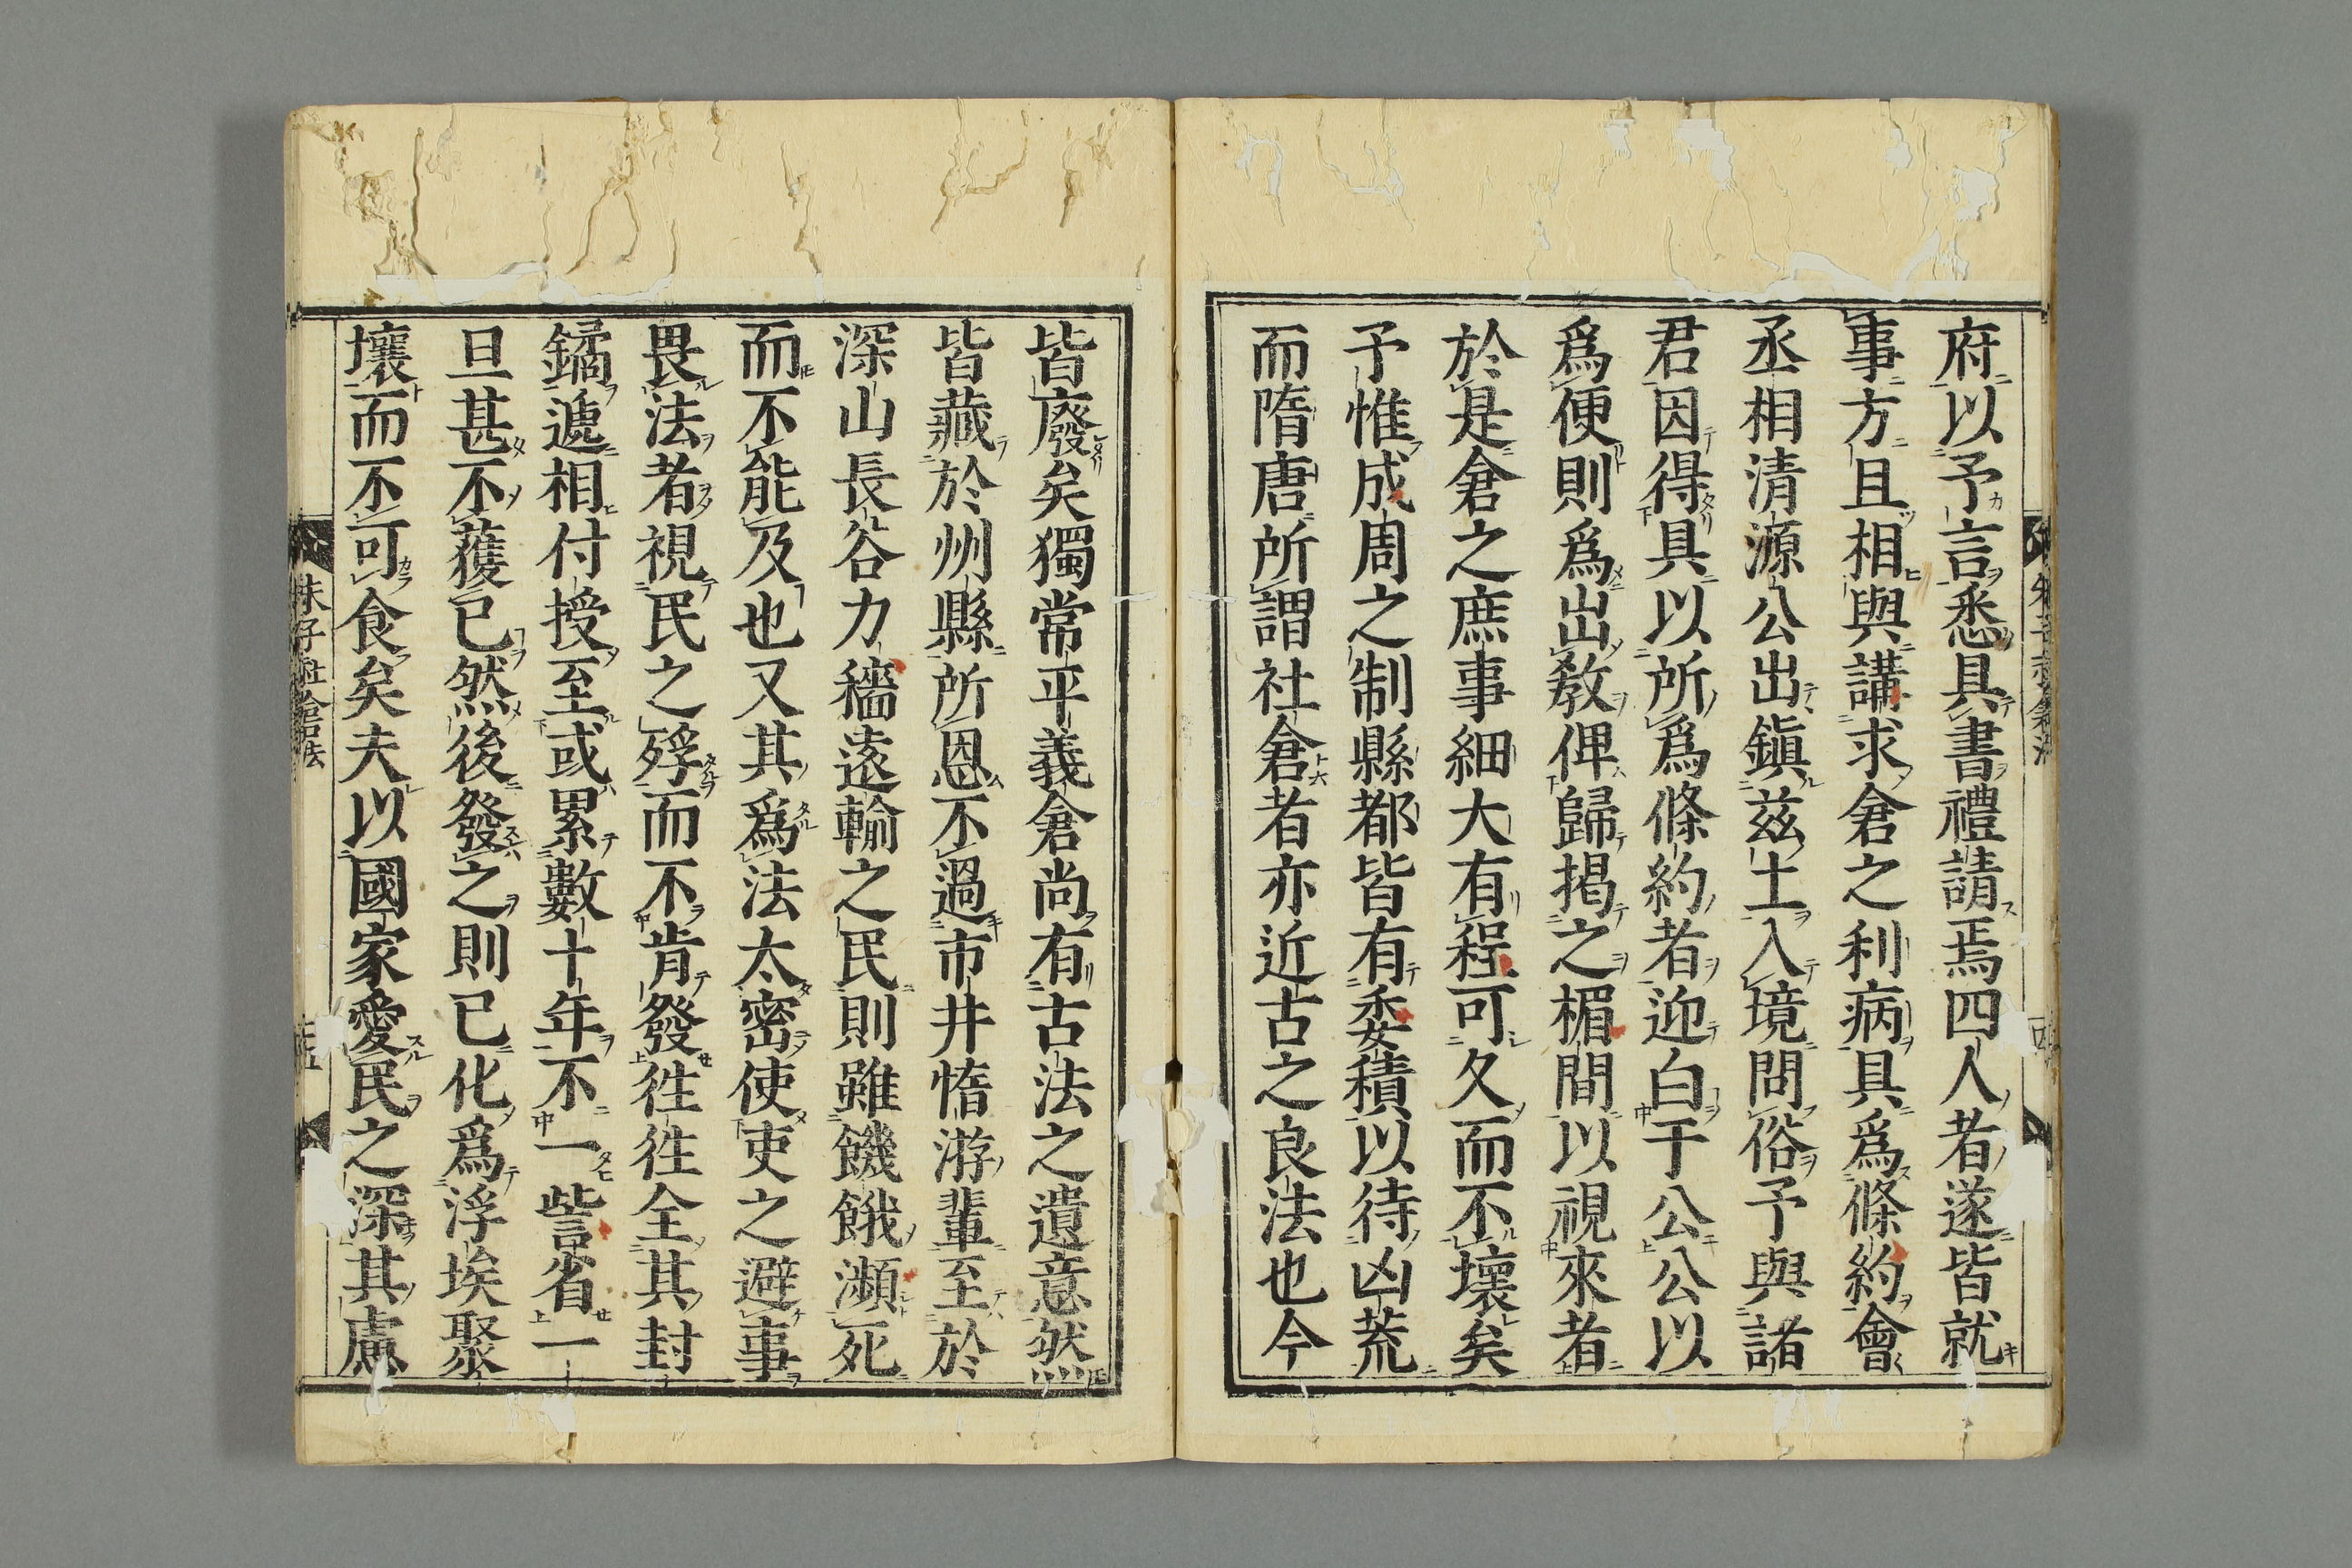 府以予言悉具書禮請焉四人者遂皆就
事方且相與講求倉之利病具爲條約會
丞相清源公出鎮兹土入境問俗予與諸
君因得具以所爲條約者迎白于公公以
爲便則爲出教俾歸掲之楣間以視來者
於是倉之庶事細大有程可久而不壞矣
予惟成周之制縣都皆有委積以待凶荒
而隋唐所謂社倉者亦近古之良法也今
皆廢矣獨常平義倉尚有古法之遺意然
皆藏於州縣所恩不過市井惰游輩至於
深山長谷力穡遠輸之民則雖饑餓瀕死
而不能及也又其爲法太密使吏之避事
畏法者視民之殍而不肯發徃徃全其封
鐍遞相付授至或累數十年不一訾省一
旦甚不獲已然後發之則已化爲浮埃聚
壤而不可食矣夫以國家愛民之深其慮
朱子社倉法